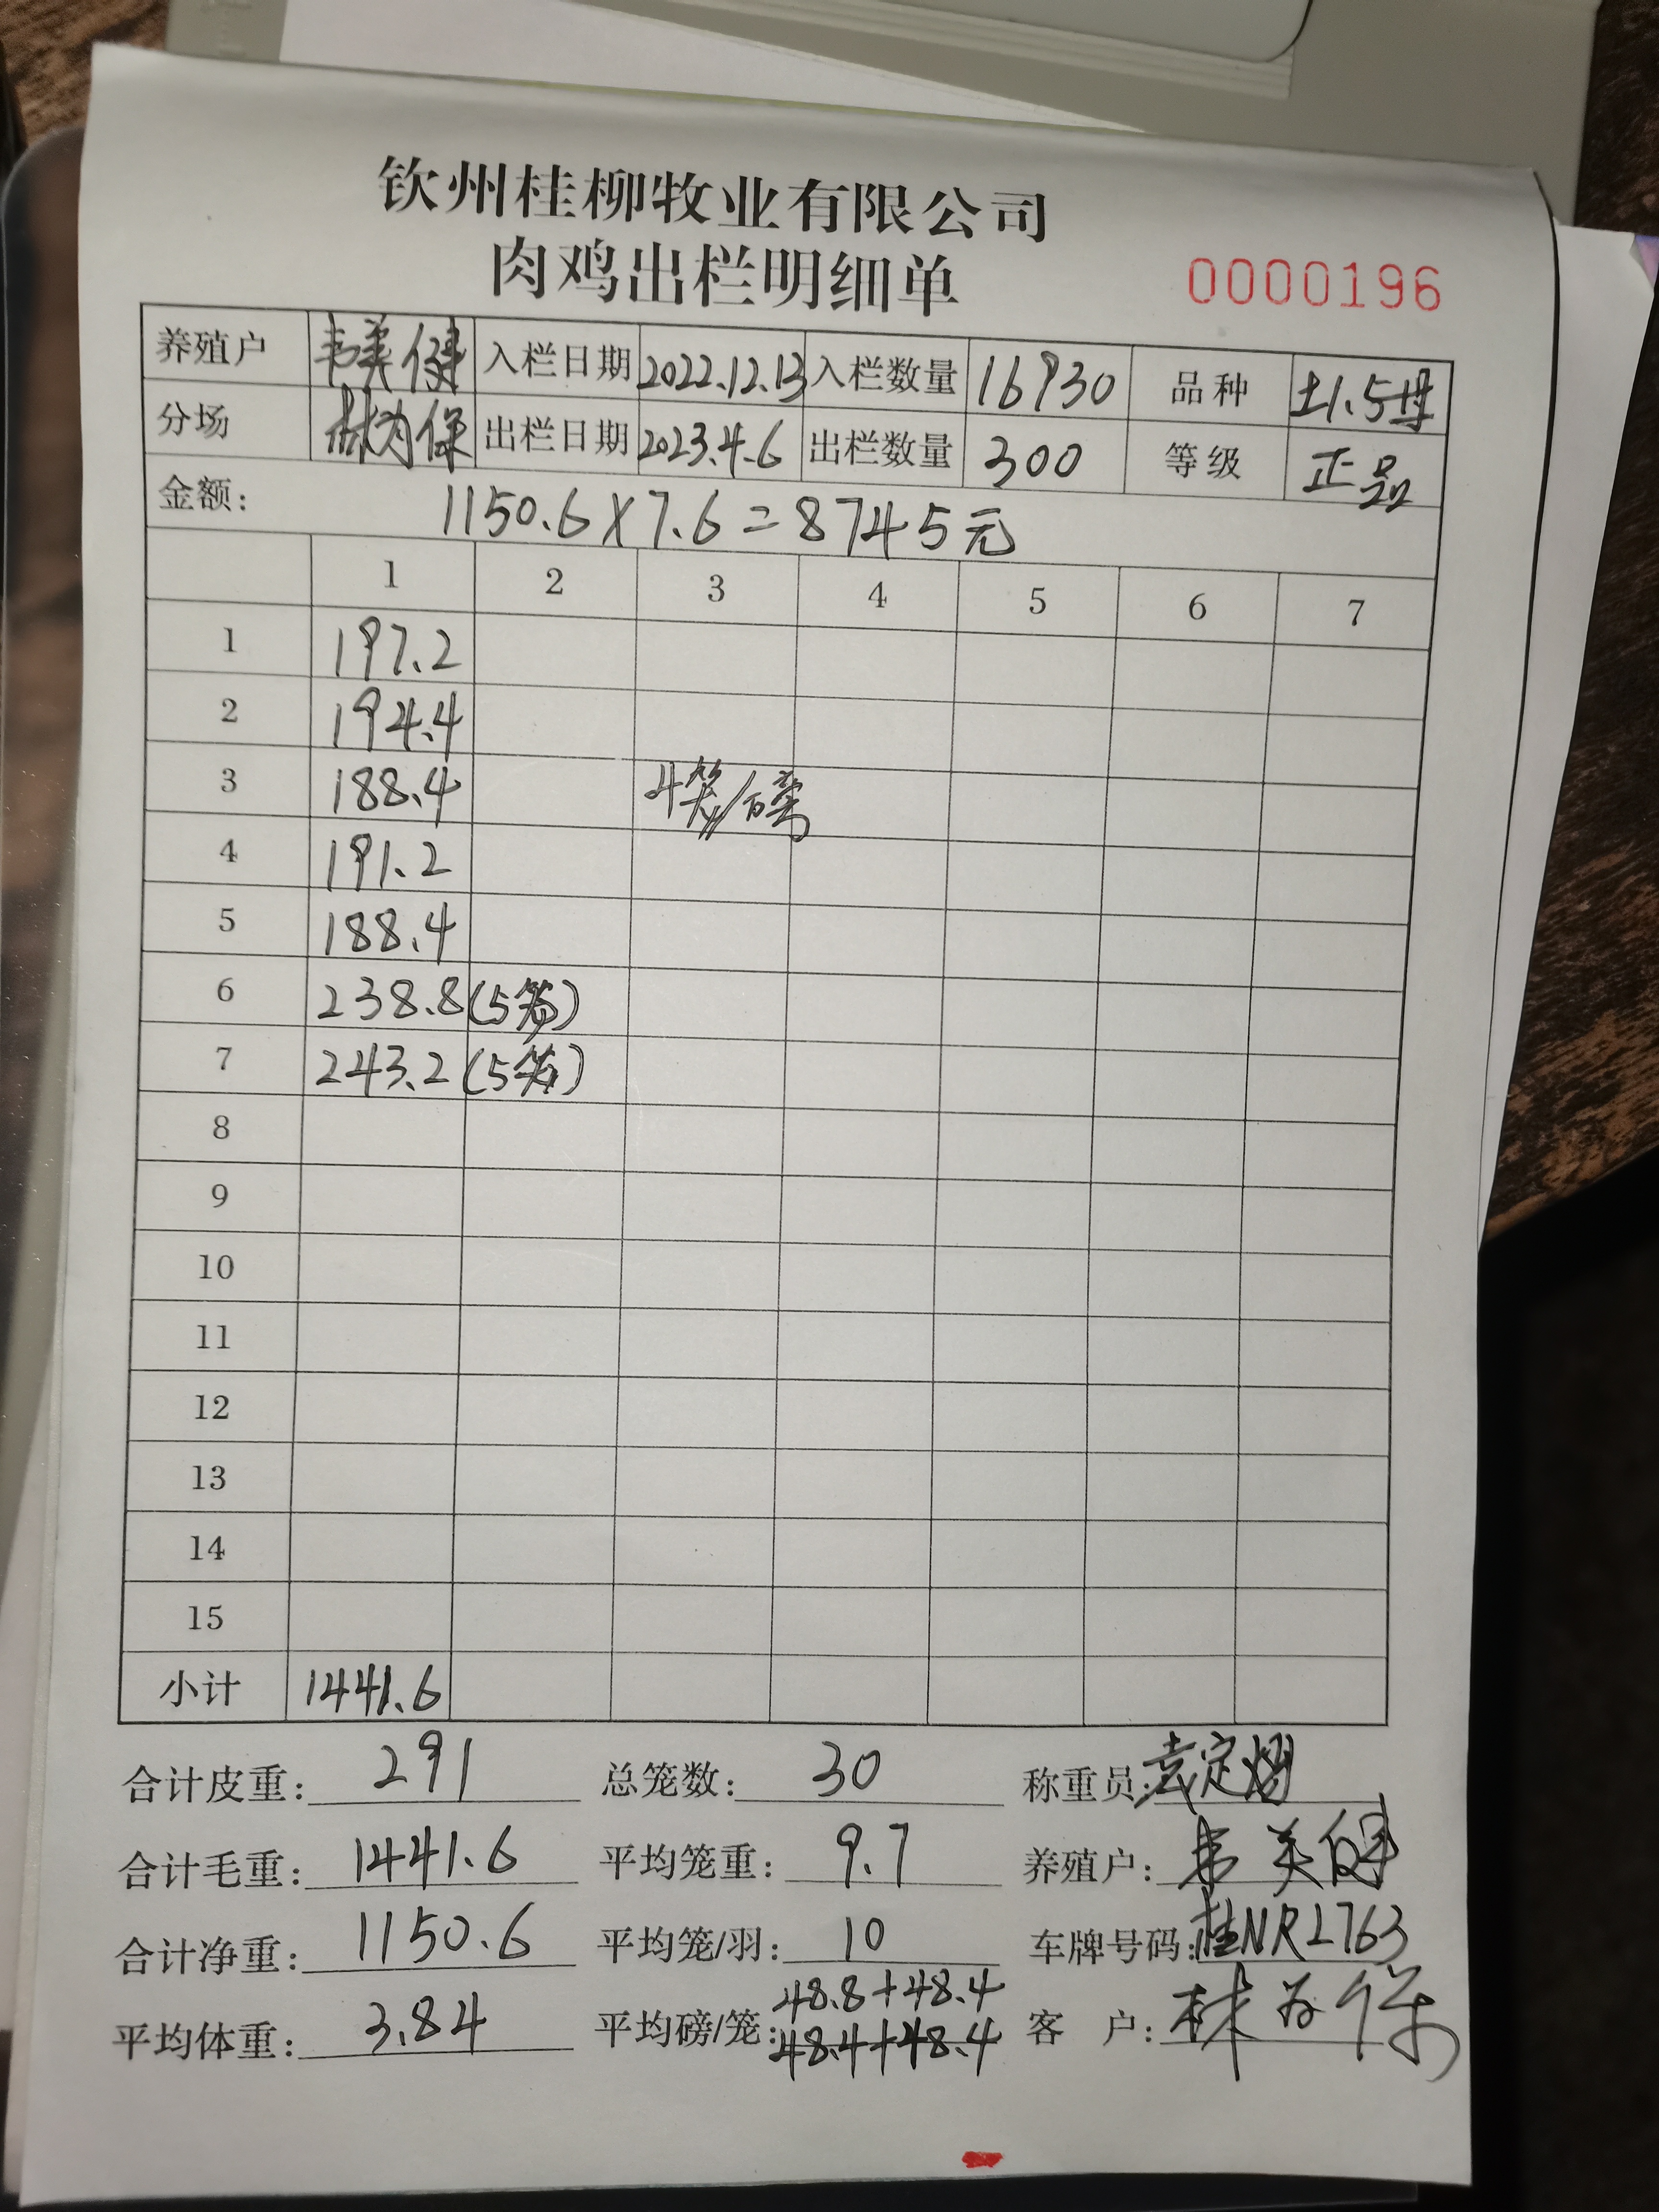 钦州桂柳牧业有限公司
肉鸡出栏明细单 0000196
养殖户 韦美健 入栏日期 2022.12.13 入栏数量 16930 品种 土1.5母
分场 林为保 出栏日期 2023.4.6 出栏数量 300 等级 正品
金额: 1150.6×7.6=8745元
1 2 3 4 5 6 7
1 197.2
2 194.4
3 188.4 4笼/磅
4 191.2
5 188.4
6 238.8(5笼)
7 243.2(5笼)
8
9
10
11
12
13
14
15
小计 1441.6
合计皮重: 291 总笼数: 30 称重员: 袁定
合计毛重: 1441.6 平均笼重: 9.7 养殖户: 韦美健
合计净重: 1150.6 平均笼/羽: 10 车牌号码: 桂NRL763
平均体重: 3.84 平均磅/笼: 48.8+48.4 客 户: 林为保
48.4+48.4